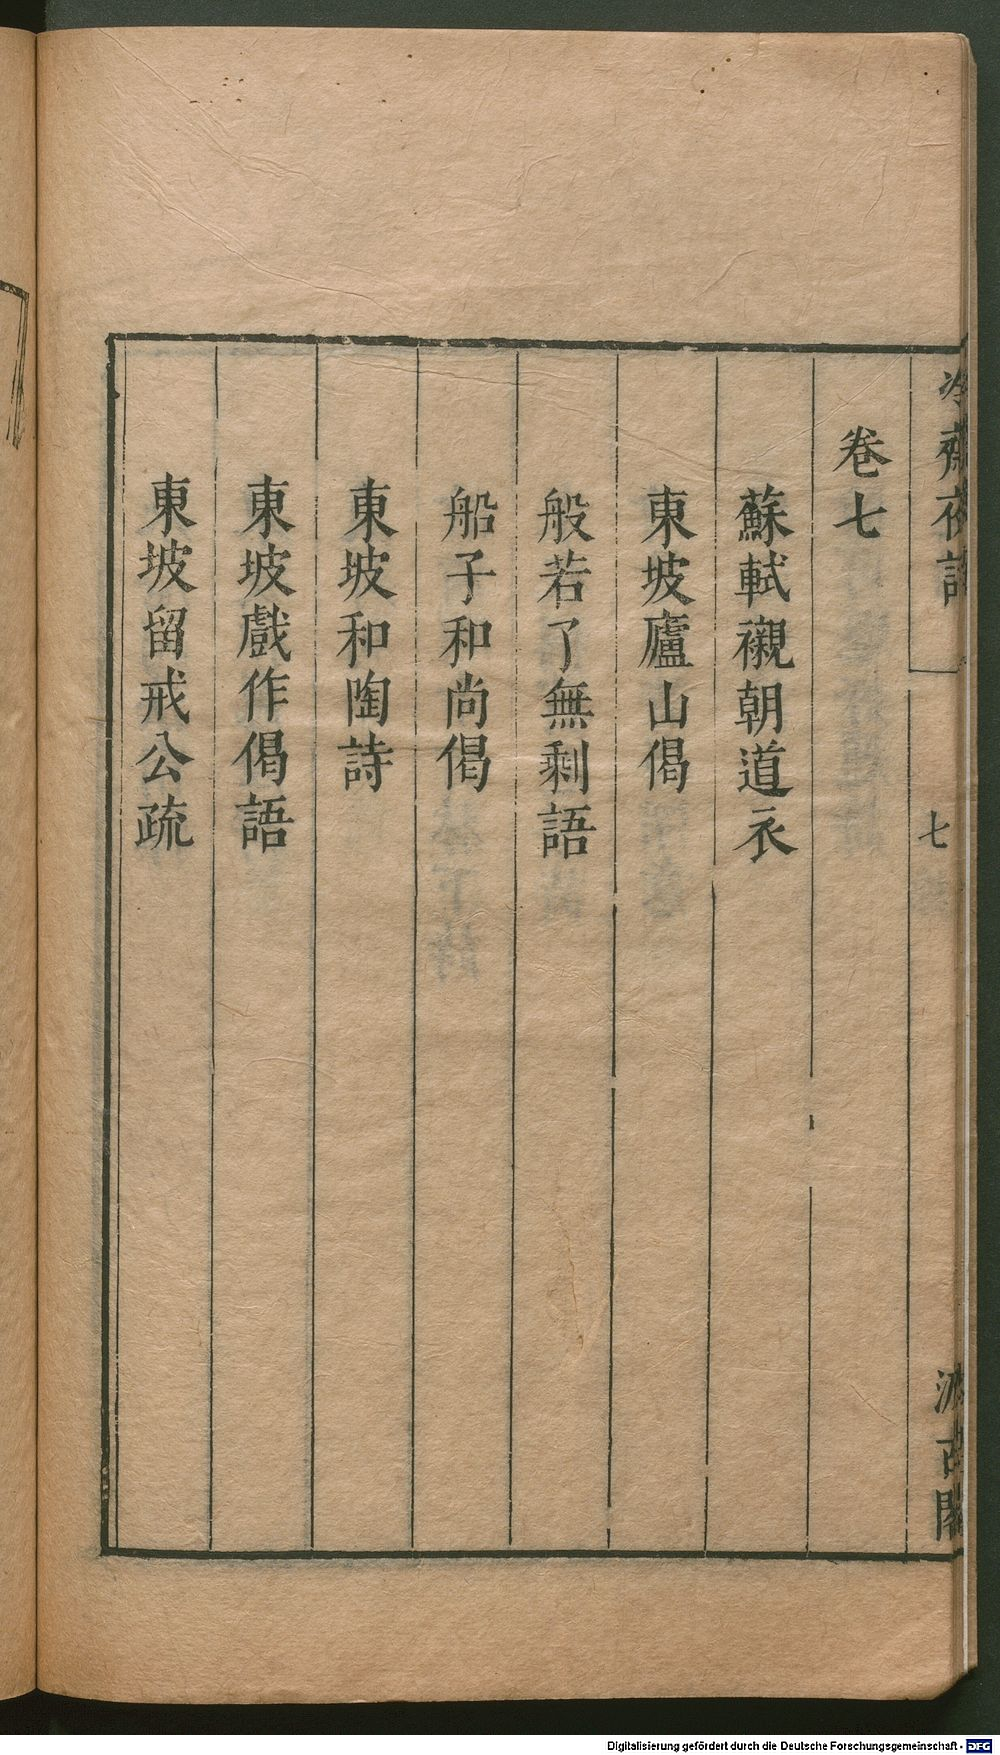 冷齋夜話
七
汲古閣
卷七
蘇軾襯朝道衣
東坡廬山偈
般若了無剩語
船子和尚偈
東坡和陶詩
東坡戲作偈語
東坡留戒公疏
Digitalisierung gefördert durch die Deutsche Forschungsgemeinschaft - DFG